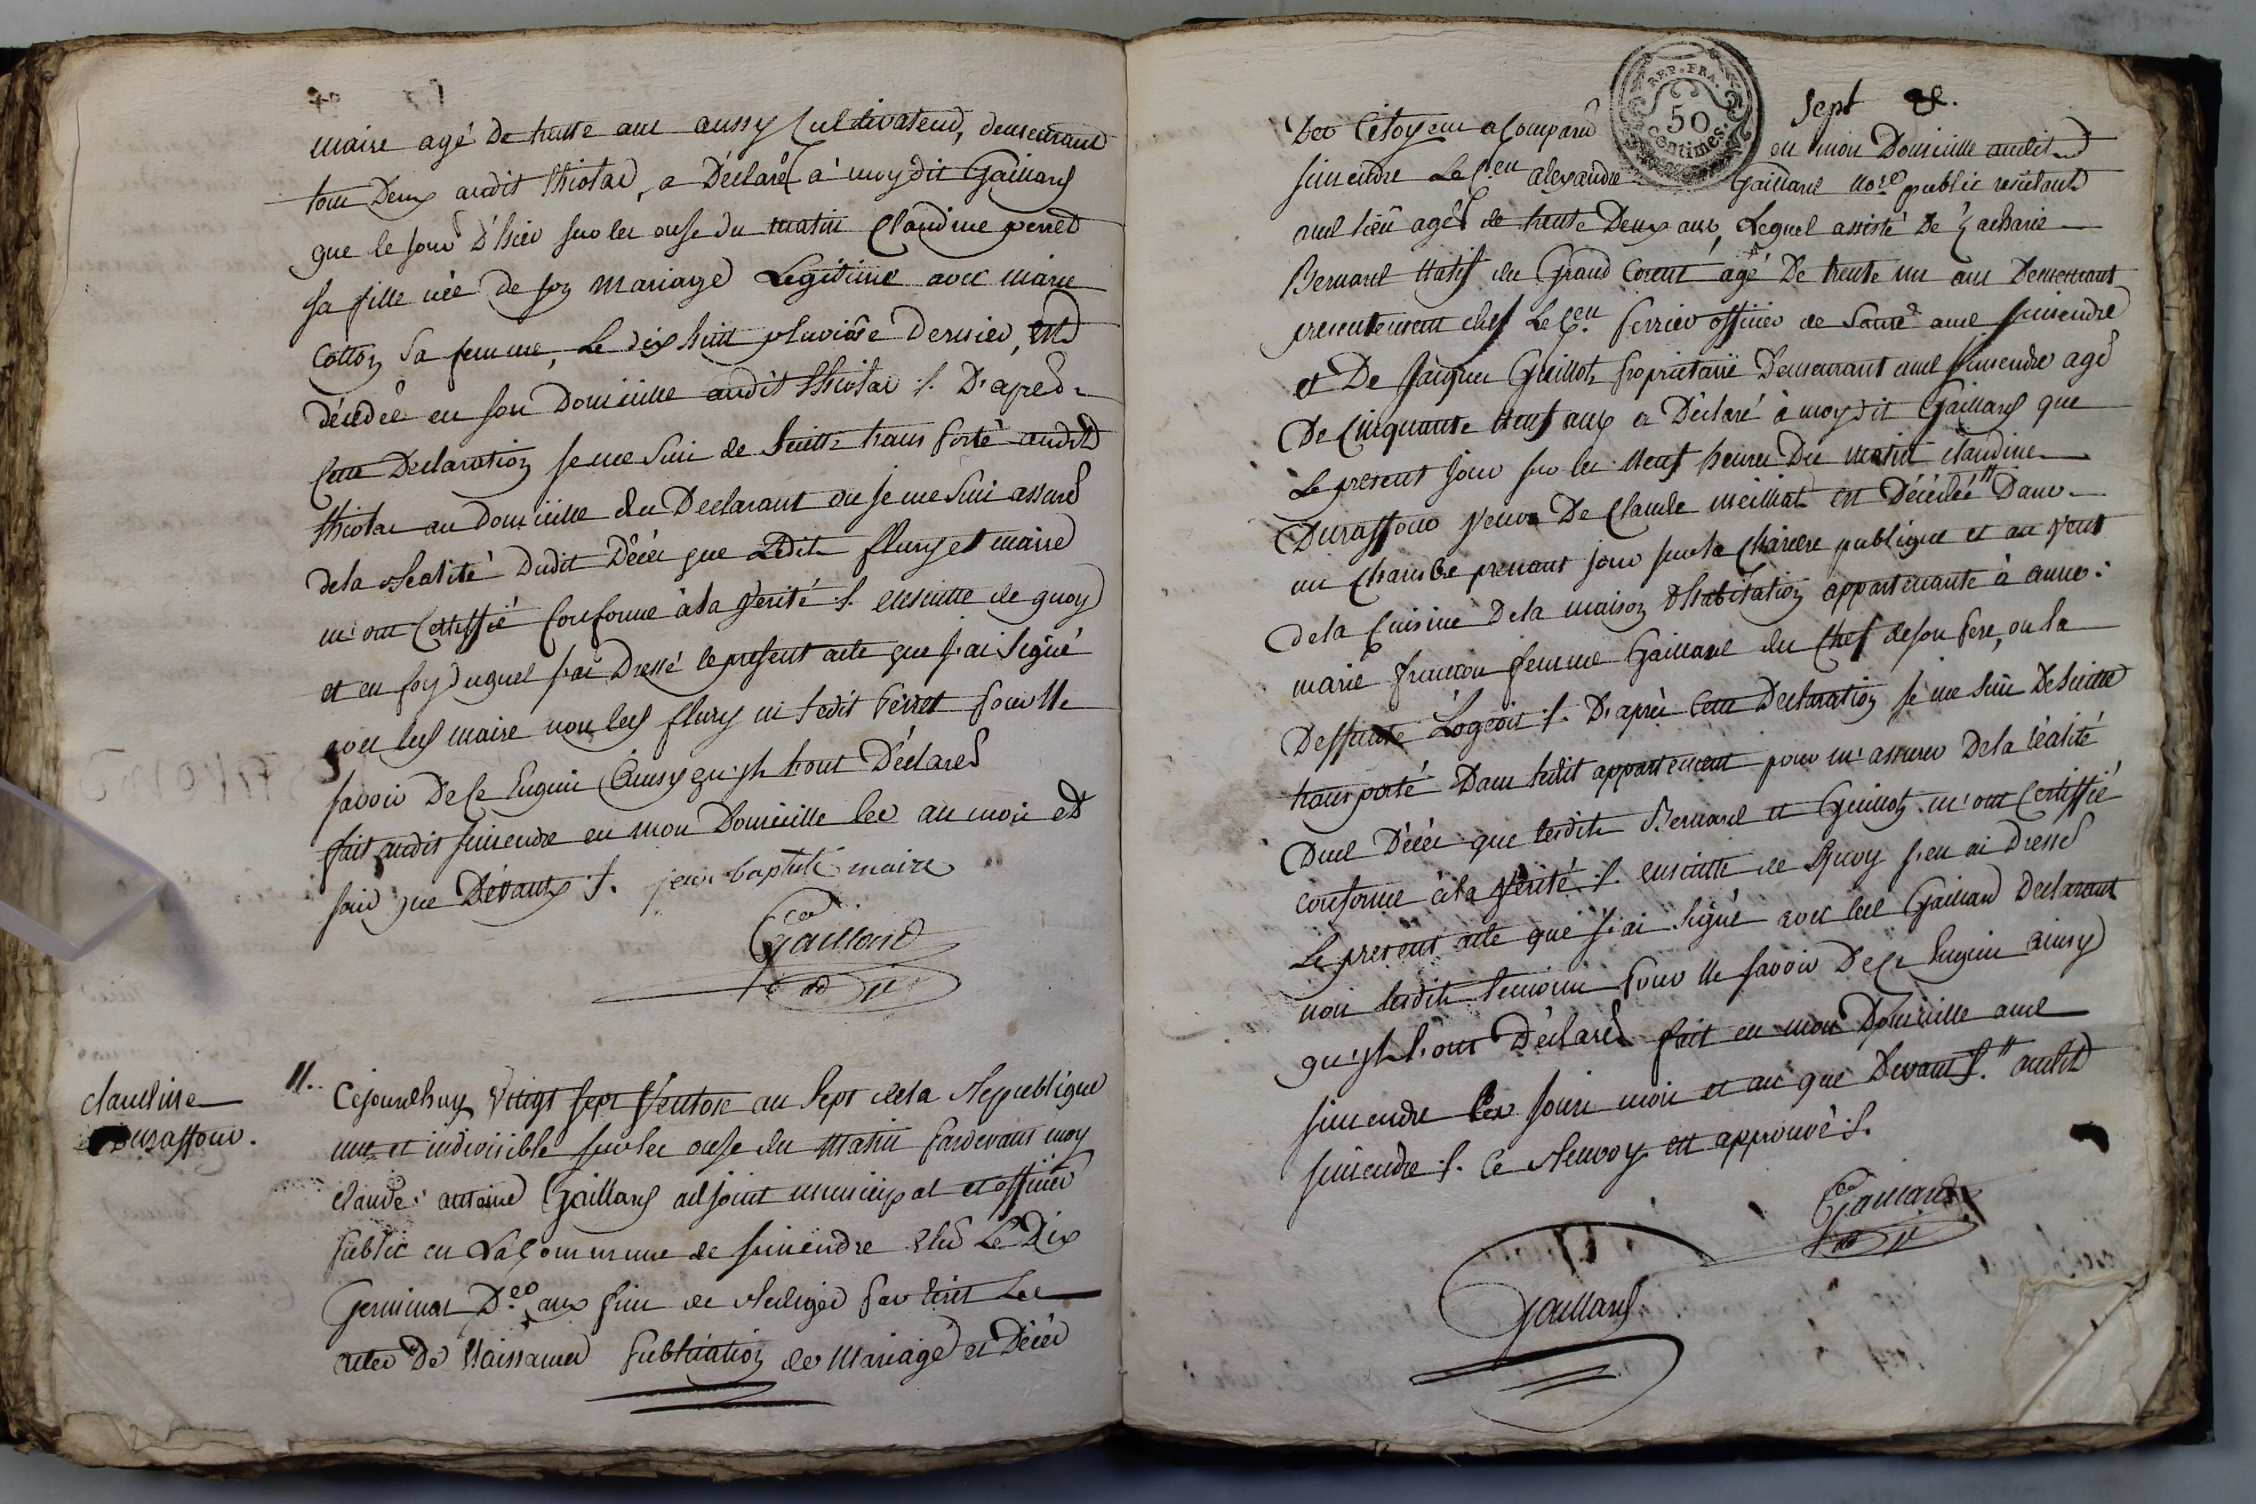 maire agé de trente ans aussy Cultivateur, demeurant
tous Deux audit Thiolas, a Déclaré à moydit Gaillard
que le jour d'hier sur les onse du matin Claudine perret
sa fille née de son mariage Legitime avec marie
Cotton sa femme, Le dix huit pluviôse dernier, est
décédée en son Domicille audit Thiolas ./. D'après
Cette Declaration je me suis de suitte transporté audit
Thiolas au Domicille du Declarant ou je me suis assuré
dela Realité dudit Décès que Lédits fleury et maire
m'ont Certiffié Conforme àla verité ./. ensuitte de quoy
et en foy duquel j'ai Dressé le present acte que j'ai signé
avec led maire non led fleury ni ledit Perret pour ne
savoir De ce Enquis Ainsy qu'ils l'ont Déclaré
fait audit simendre en mon Domicille les an mois et
jour que Dévant ./. jean baptiste maire
Gaillard
ad pt
claudine
Duraffour.
11. Cejourdhuy Vingt sept Ventose an Sept dela Republique
une et indivisible sur les onse du matin Pardevant moy
claude antoine Gaillard adjoint municipal et officier
Public en La Commune de simendre Elu Le Dix
Germinal Der aux fins de Rediger sur livre Les
actes De Naissances Publication de Mariage et Décès
REP. FRA.
50
centimes.
Sept
Des Citoyens a Comparu en mon Domicille audit
simendre Le Cen alexandre Gaillard nore public residant
aud lieu agé de trente Deux ans, Lequel assisté De Zacharie
Bernard Natif du Grand Corent agé De trente un ans Demeurant
presentement chef Le Cen ferrier officier de Santé aud simendre
et De Jacques Guillot Proprietaire Demeurant aud simendre agé
De Cinquante neuf ans a Déclaré à moydit Gaillard que
Le present jour sur les Neuf heures Du matin claudine
Duraffour veuve De Claude meillat est Décédée " Dans
un chambre prenant jour sur la Chariere publique et au vent
dela Cuisine Dela maison d'habitation appartenante à anne
marie francon femme Gaillard du Chef de son Pere, ou la
Deffunte Logeoit ./. D'après Cette Declaration je me suis De suitte
transporté Dans ledit appartement pour m'assurer Dela réalité
Dud Décès que lesdits Bernard et Guillot m'ont Certiffié
conforme àla verité ./. ensuitte de Quoy j'en ai Dressé
Le present acte que j'ai signé avec led Gaillard Declarant
non lesdits temoins Pour ne savoir De ce Enquis ainsy
qu'ils l'ont Déclaré fait en mon Domicille aud
simendre les jours mois et an que Devant ./. " audit
simendre ./. Ce Renvoy est approuvé ./.
Gaillard
ad pt
Gaillard